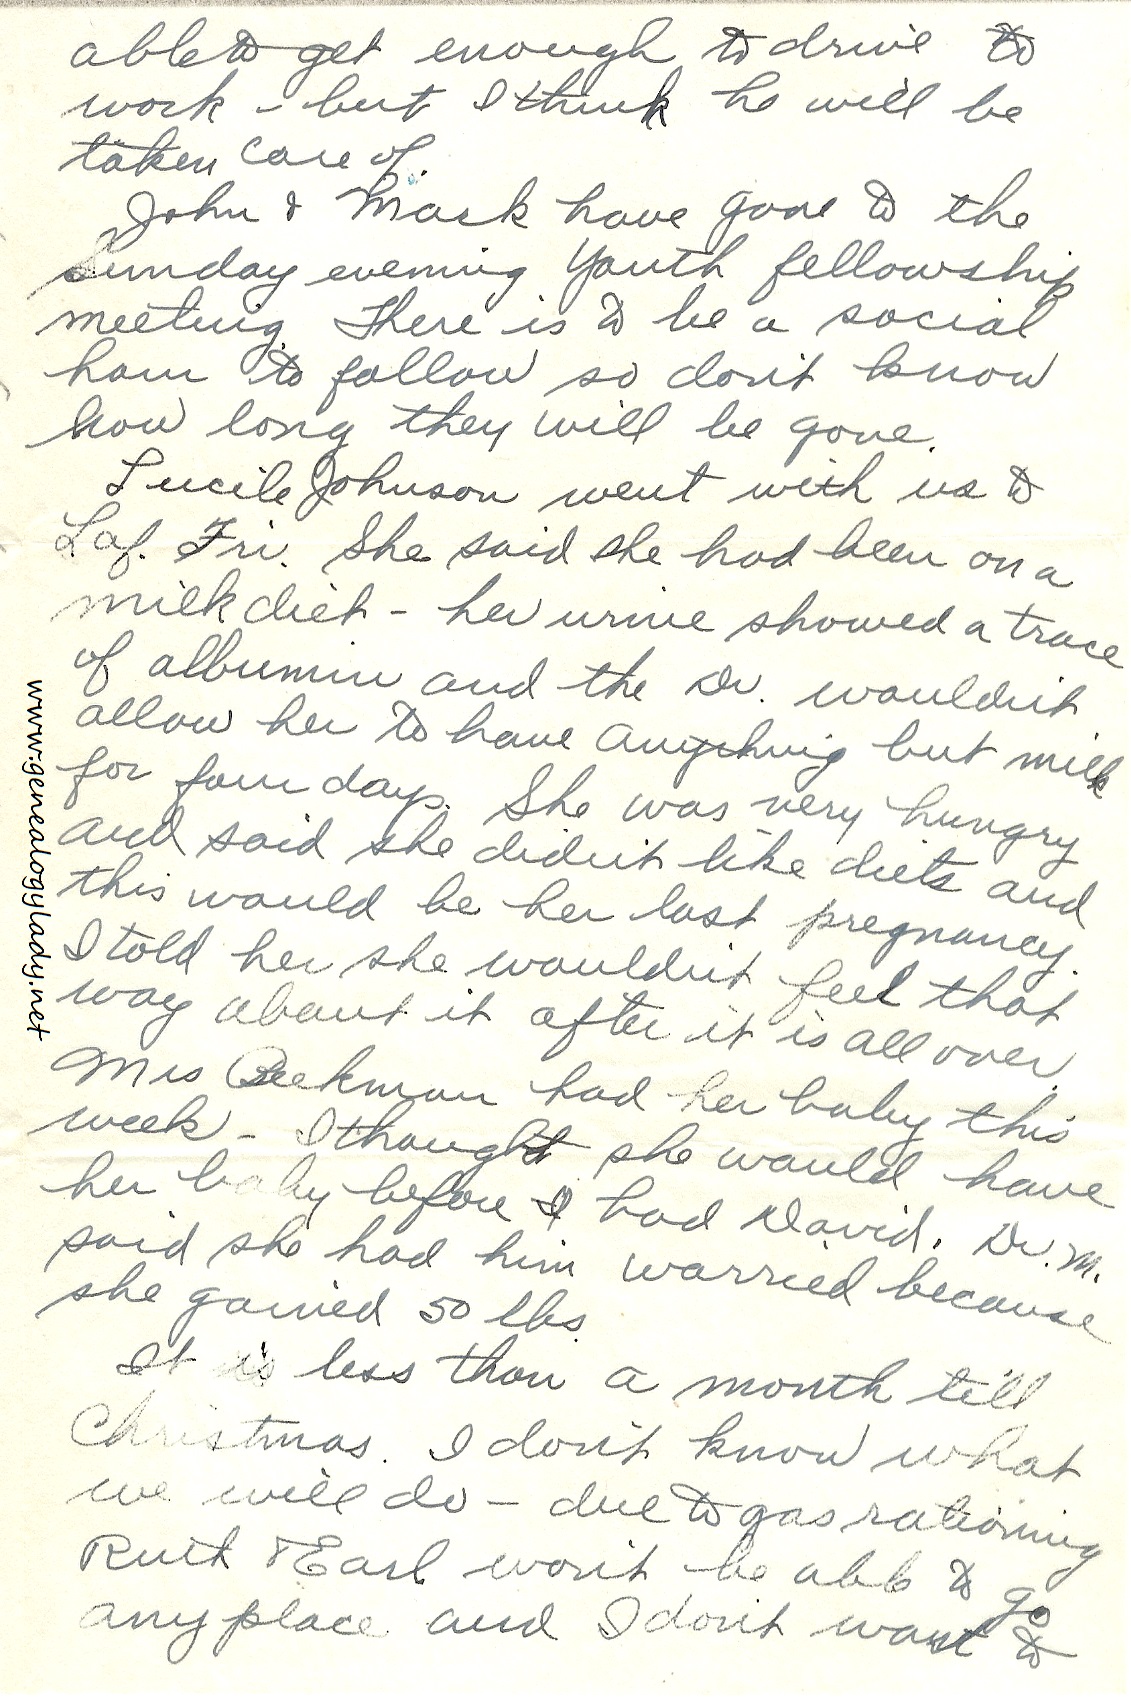 able to get enough to drive to
work - but I think he will be
taken care of.
John & Mark have gone to the
Sunday evening Youth fellowship
meeting. There is to be a social
hour to follow so don't know
how long they will be gone.
Lucile Johnson went with us to
Laf. Fri. She said she had been on a
milk diet - her urine showed a trace
of albumin and the Dr. wouldn't
allow her to have anything but milk
for four days. She was very hungry
and said she didn't like diets and
this would be her last pregnancy.
I told her she wouldn't feel that
way about it after it is all over
Mrs Beekman had her baby this
week - I thought she would have
her baby before I had David. Dr. M.
said she had him worried because
she gained 50 lbs.
It is less than a month till
Christmas. I don't know what
we will do - due to gas rationing
Ruth & Earl won't be able to go
any place and I don't want to
www.genealogylady.net